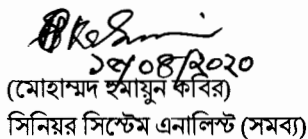 ১৮/০৪/২০২০
(মোহাম্মদ হুমায়ুন কবির)
সিনিয়র সিস্টেম এনালিস্ট (সমব্য)